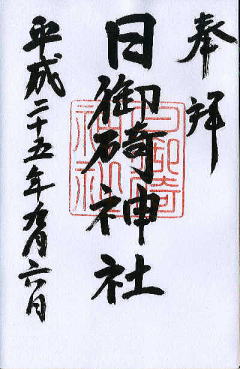 奉拝
日御碕神社
平成二十五年九月六日